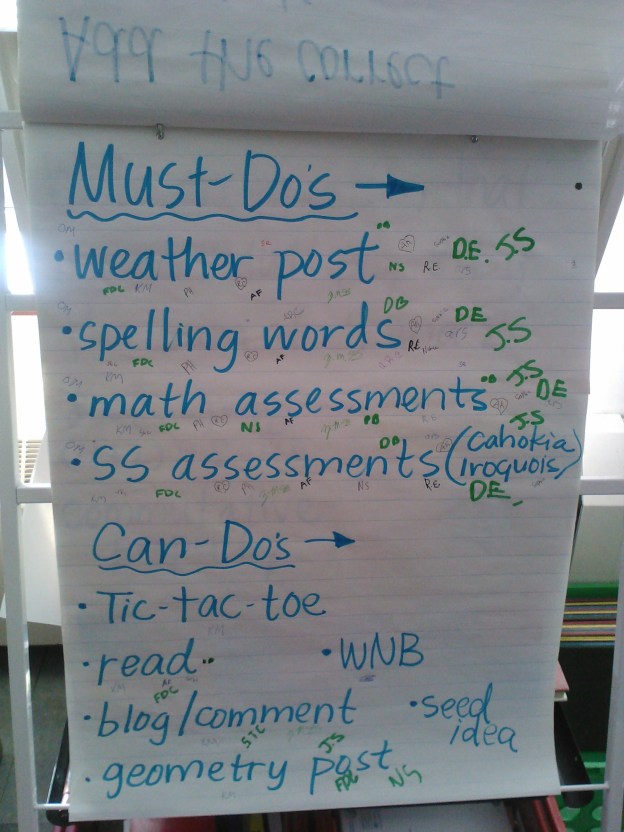 Add the correct
Must-Do's →
• weather post
DB
D.E. J.S
NS R.E.
FDC KM PH AF
• spelling words
DB
DE
J.S
R.E.
KM FDC PH AF
• math assessments
DB J.S DE
J.S
KM FDC PH NS AF DB
• SS assessments (Cahokia
Iroquois)
DB
DE
FDC AF NS R.E.
Can-Do's →
• Tic-tac-toe
• read • WNB
AF
FDC
• blog/comment • seed
idea
STC J.S
• geometry post
FDC NS